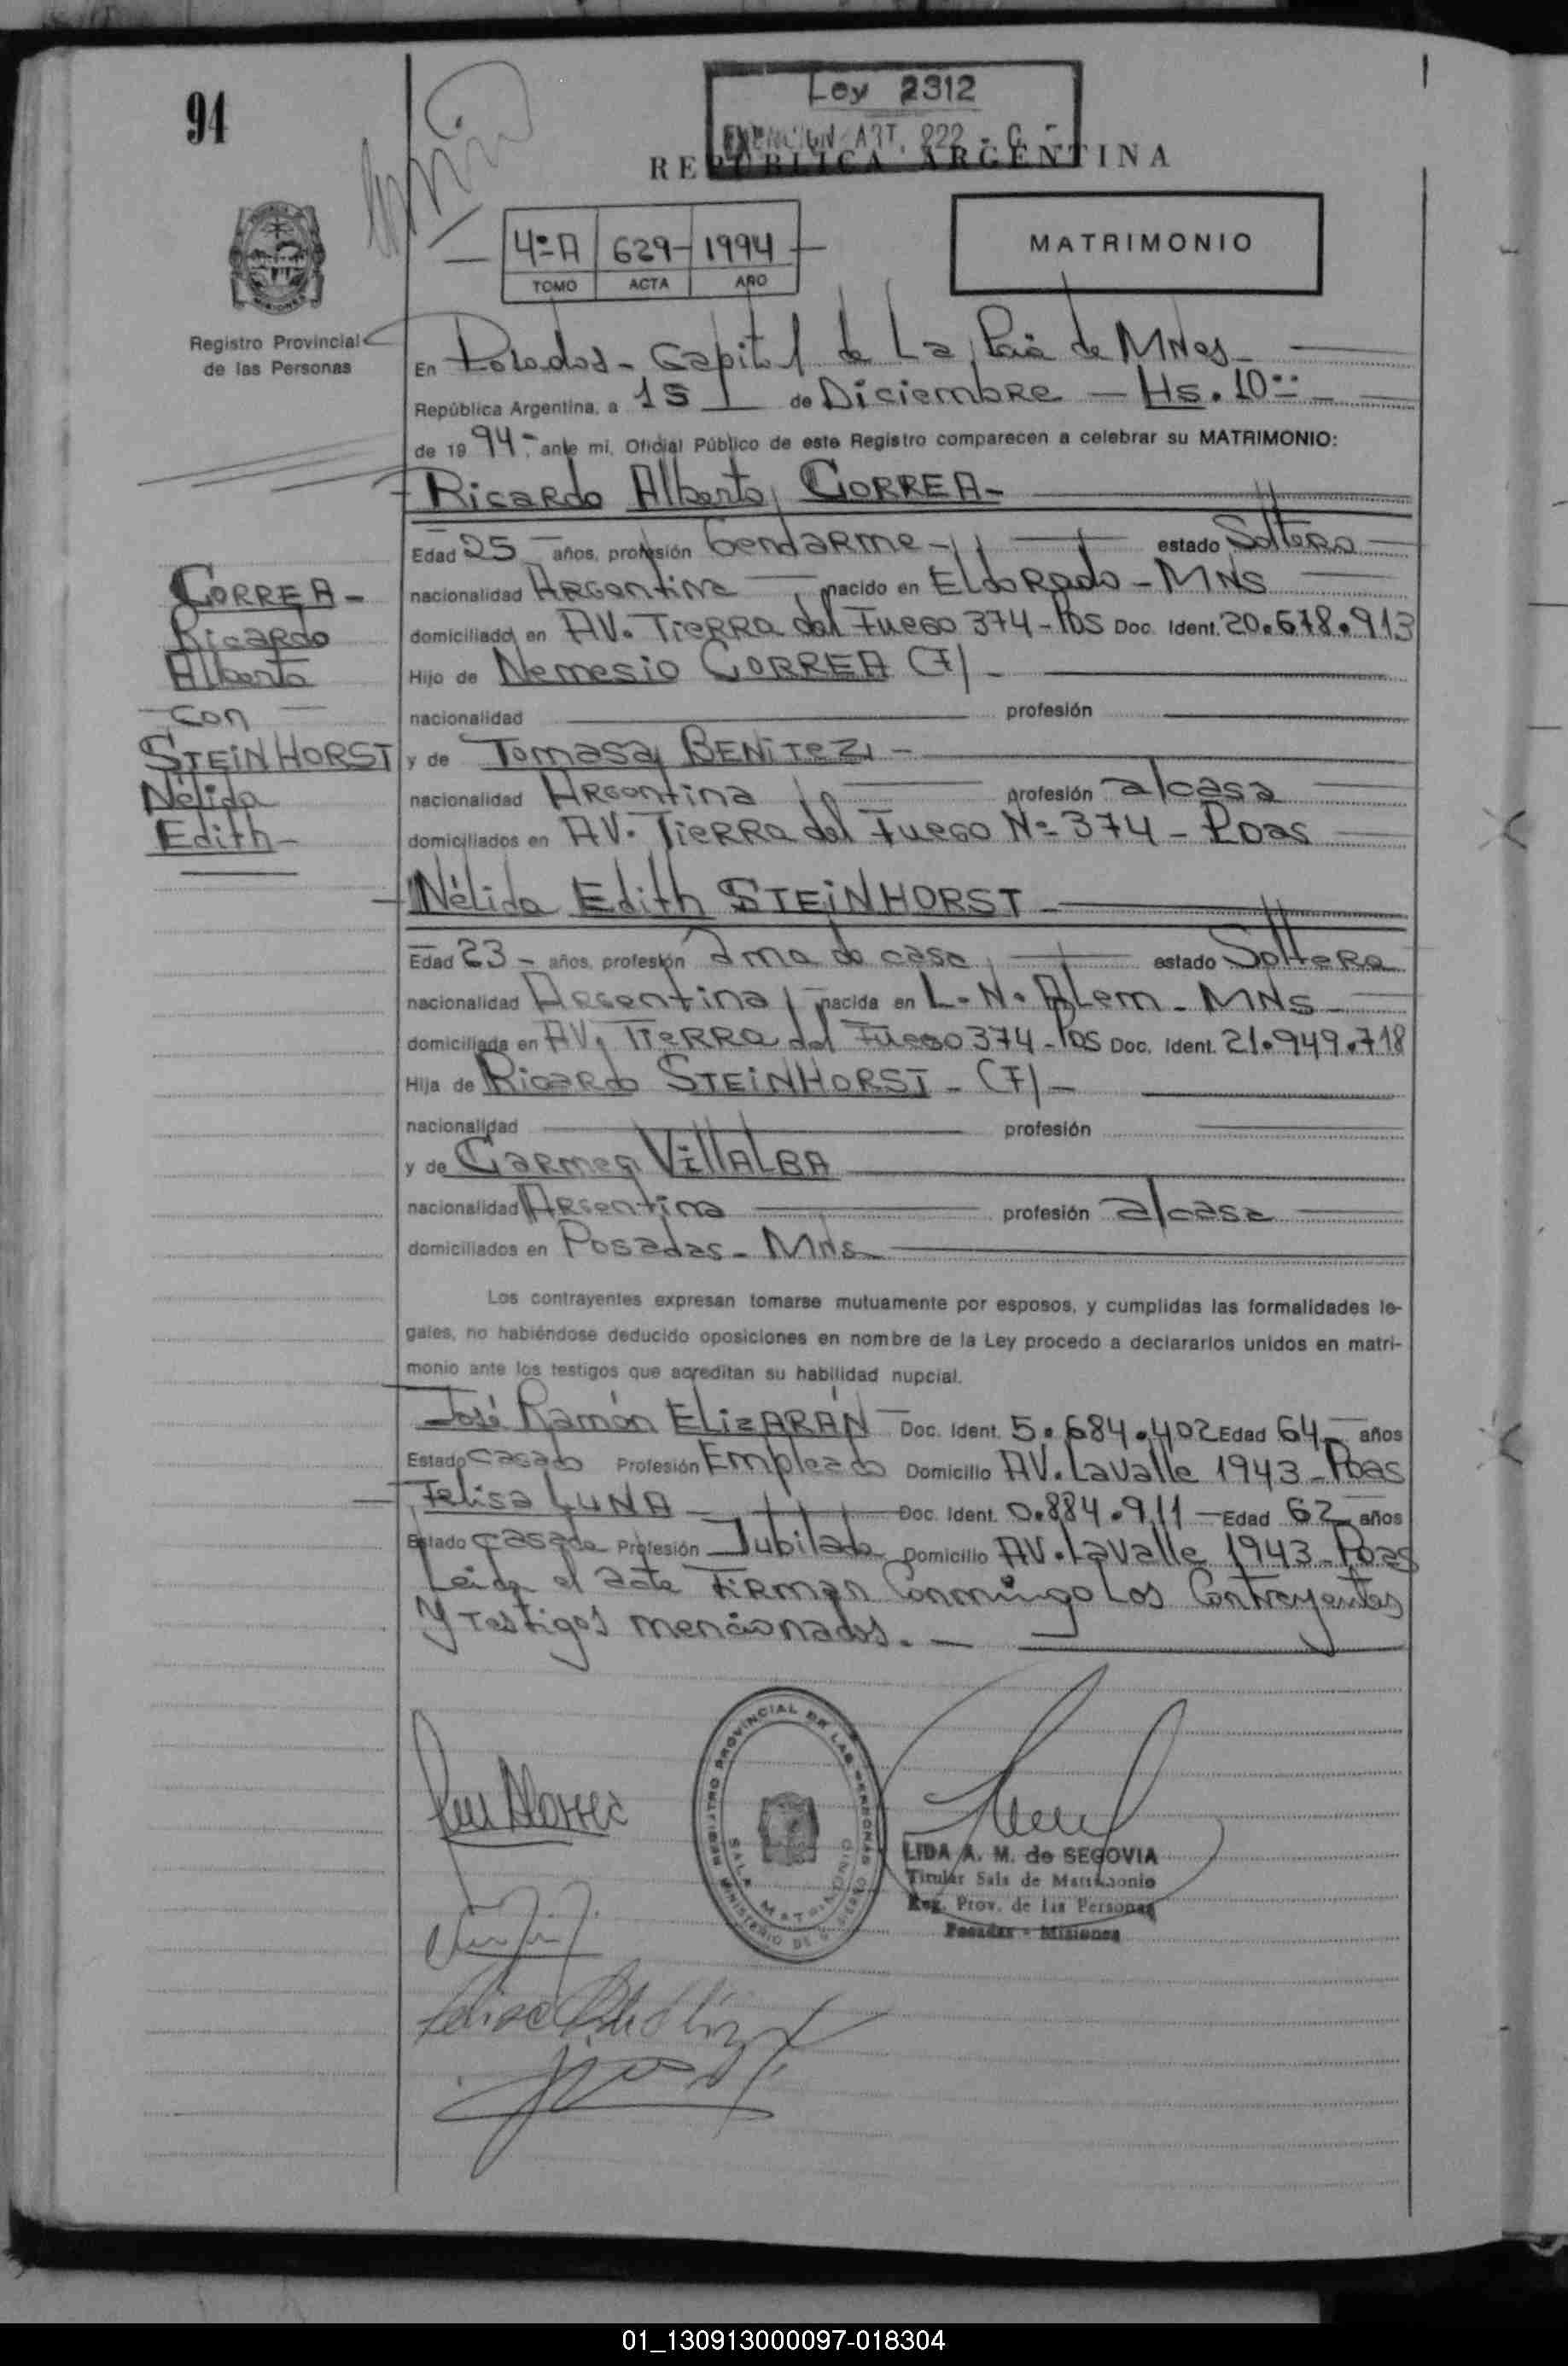 94
Ley 2312
EXENCION ART. 222 - C -
REPUBLICA ARGENTINA
4º A 629 - 1994
TOMO ACTA AÑO
MATRIMONIO
Registro Provincial
de las Personas
En Posadas - Capital de La Pcia de MNes
República Argentina, a 15 de Diciembre - Hs. 10
de 1994 - ante mi, Oficial Público de este Registro comparecen a celebrar su MATRIMONIO:
Ricardo Alberto CORREA -
Edad 25 años, profesión Gendarme - estado Soltero
nacionalidad Argentina nacido en Eldorado - MNS
domiciliado en AV. Tierra del Fuego 374 - Pos Doc. Ident. 20.678.913
Hijo de Nemesio CORREA (F) -
nacionalidad profesión
y de Tomasa BENITEZ -
nacionalidad Argentina profesión a/casa
domiciliados en AV. Tierra del Fuego Nº 374 - Pdas
CORREA -
Ricardo
Alberto
con
STEINHORST
Nélida
Edith -
Nélida Edith STEINHORST
Edad 23 - años, profesión ama de casa estado Soltera
nacionalidad Argentina nacida en L. N. Alem - MNS
domiciliada en AV. Tierra del Fuego 374 - Pos Doc. Ident. 21.949.718
Hija de Ricardo STEINHORST - (F) -
nacionalidad profesión
y de Carmen VILLALBA
nacionalidad Argentina profesión a/casa
domiciliados en Posadas - MNS
Los contrayentes expresan tomarse mutuamente por esposos, y cumplidas las formalidades le-
gales, no habiéndose deducido oposiciones en nombre de la Ley procedo a declararlos unidos en matri-
monio ante los testigos que acreditan su habilidad nupcial.
José Ramón ELIZARÁN Doc. Ident. 5.684.402 Edad 64 - años
Estado casado Profesión Empleado Domicilio AV. Lavalle 1943 - Pdas
Felisa LUNA Doc. Ident. 0.884.911 - Edad 62 años
Estado casada Profesión Jubilada Domicilio AV. Lavalle 1943 - Pdas
Leida el acta firman Conmigo Los Contrayentes
y Testigos mencionados. -
REGISTRO PROVINCIAL DE LAS PERSONAS
SALA MATRIMONIO
MINISTERIO DE GOBIERNO
LIDA A. M. de SEGOVIA
Titular Sala de Matrimonio
Reg. Prov. de las Personas
Posadas - Misiones
01_130913000097-018304